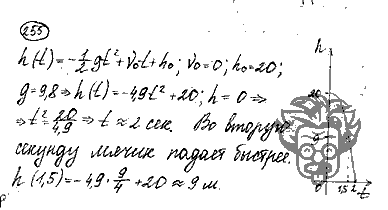 255
h(t)=-1/2 gt²+v₀t+h₀; v₀=0; h₀=20;
g=9,8⇒h(t)=-4,9t²+20; h=0⇒
⇒t²=20/4,9⇒t≈2 сек. Во вторую
секунду мячик падает быстрее.
h(1,5)=-4,9·9/4+20≈9 м.
h
20
9
0 1,5 2 t